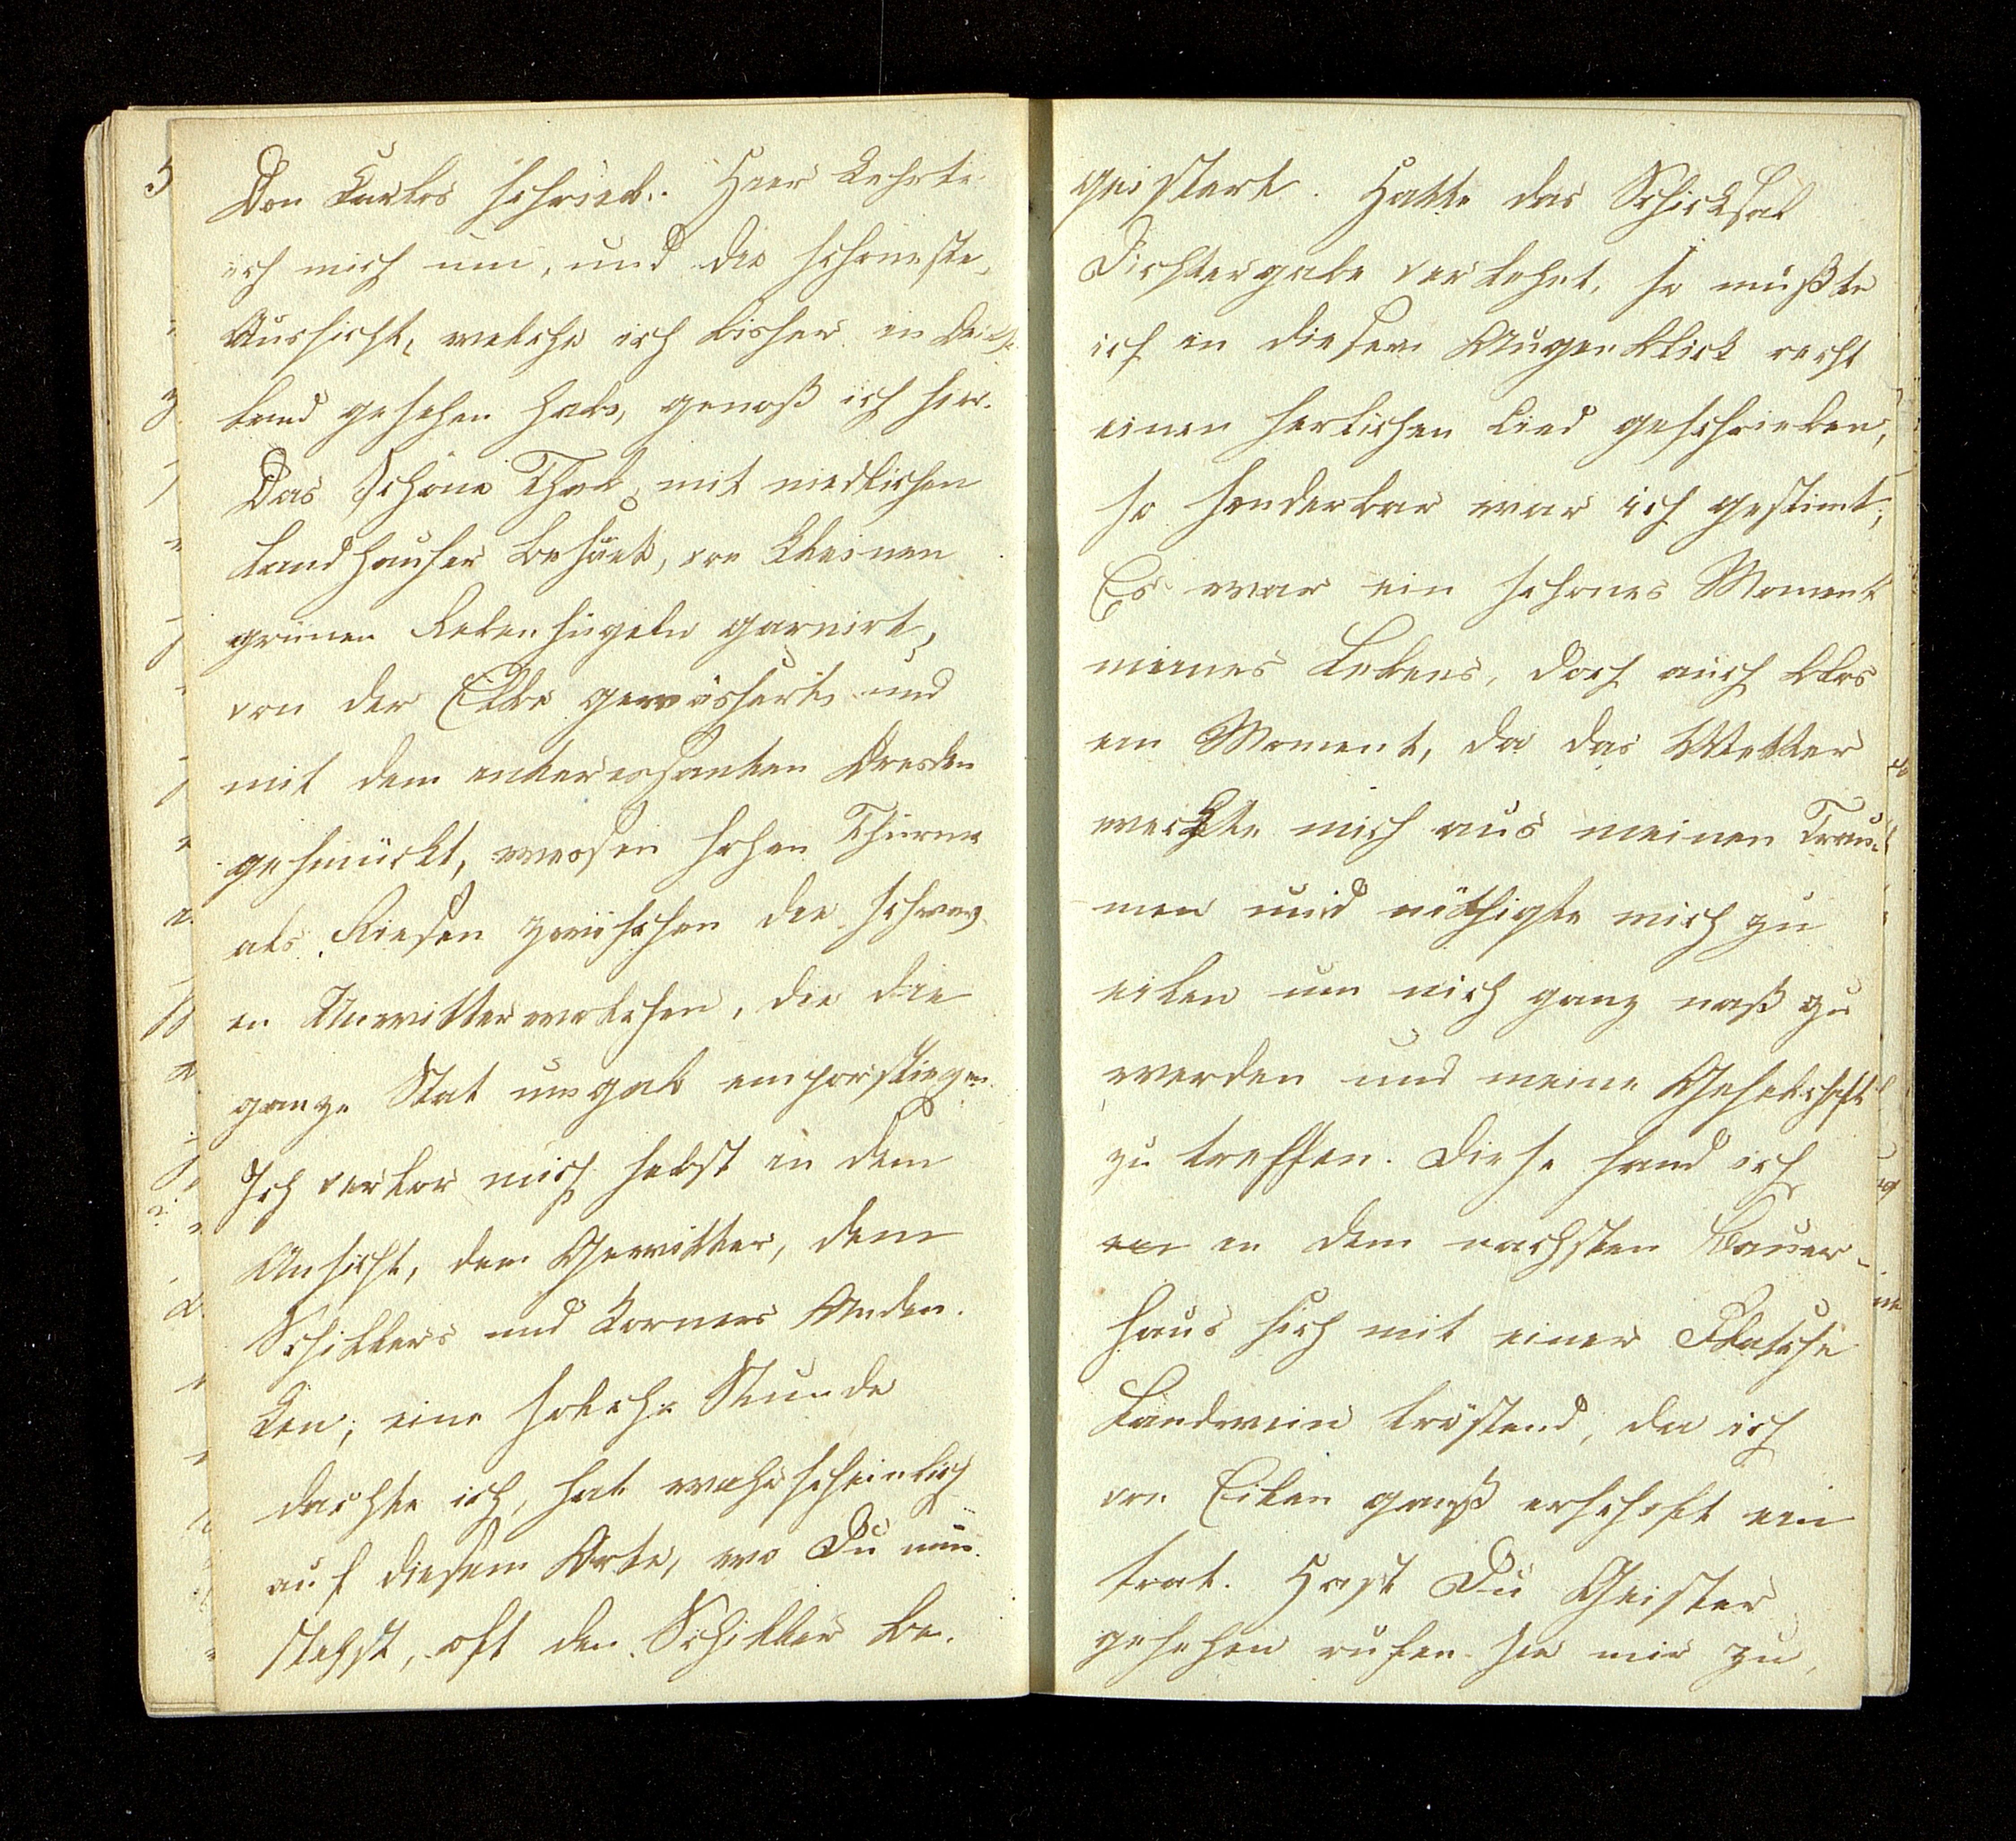 Don Carlos schrieb. Hier kehrte
ich mich um, und die schöneste
Aussicht, welche ich bisher in Deutsch
land gesehen habe, genoß ich hier.
Das schöne Thal, mit niedlichen
Landhauser besäet, von kleinen
grünen Rebenhügeln garnirt,
von der Elbe gewässert, und
mit dem interessanten Dresden
geschmückt, wessen hohen Thürme
als Riesen zwischen die schwarz
en Unwitterwolcken, die die
ganze Stat umgab emporstiegen.
Ich verlor mich selbst in dem
Ansicht, dem Gewitter, dem
Schillers und Korners Anden-
ken; eine solche Stunde
dachte ich, hat wahrscheinlich
auf diesem Orte, wo Du nun
stehst, oft den Schiller be-
geistert. Hatte das Schicksal
Dichtergabe verlehnt, so mußte
ich in diesem Augenblick recht
einen herlichen Lied geschrieben,
so sonderbar war ich gestimt;
Es war ein schones Moment
meines Lebens, doch auch blos
ein Moment, da das Wetter
weckte mich aus meinen Trau-
men und nöthigte mich zu
eilen um nich ganz naß zu
werden und meine Geselschaft
zu treffen. Diese fand ich
in dem nachsten Bauer-
haus sich mit einer Flasche
Landwein tröstend, da ich
von Eilen ganß erschopft ein
trat. Hast Du Geister
gesehen rufen sie mir zu,